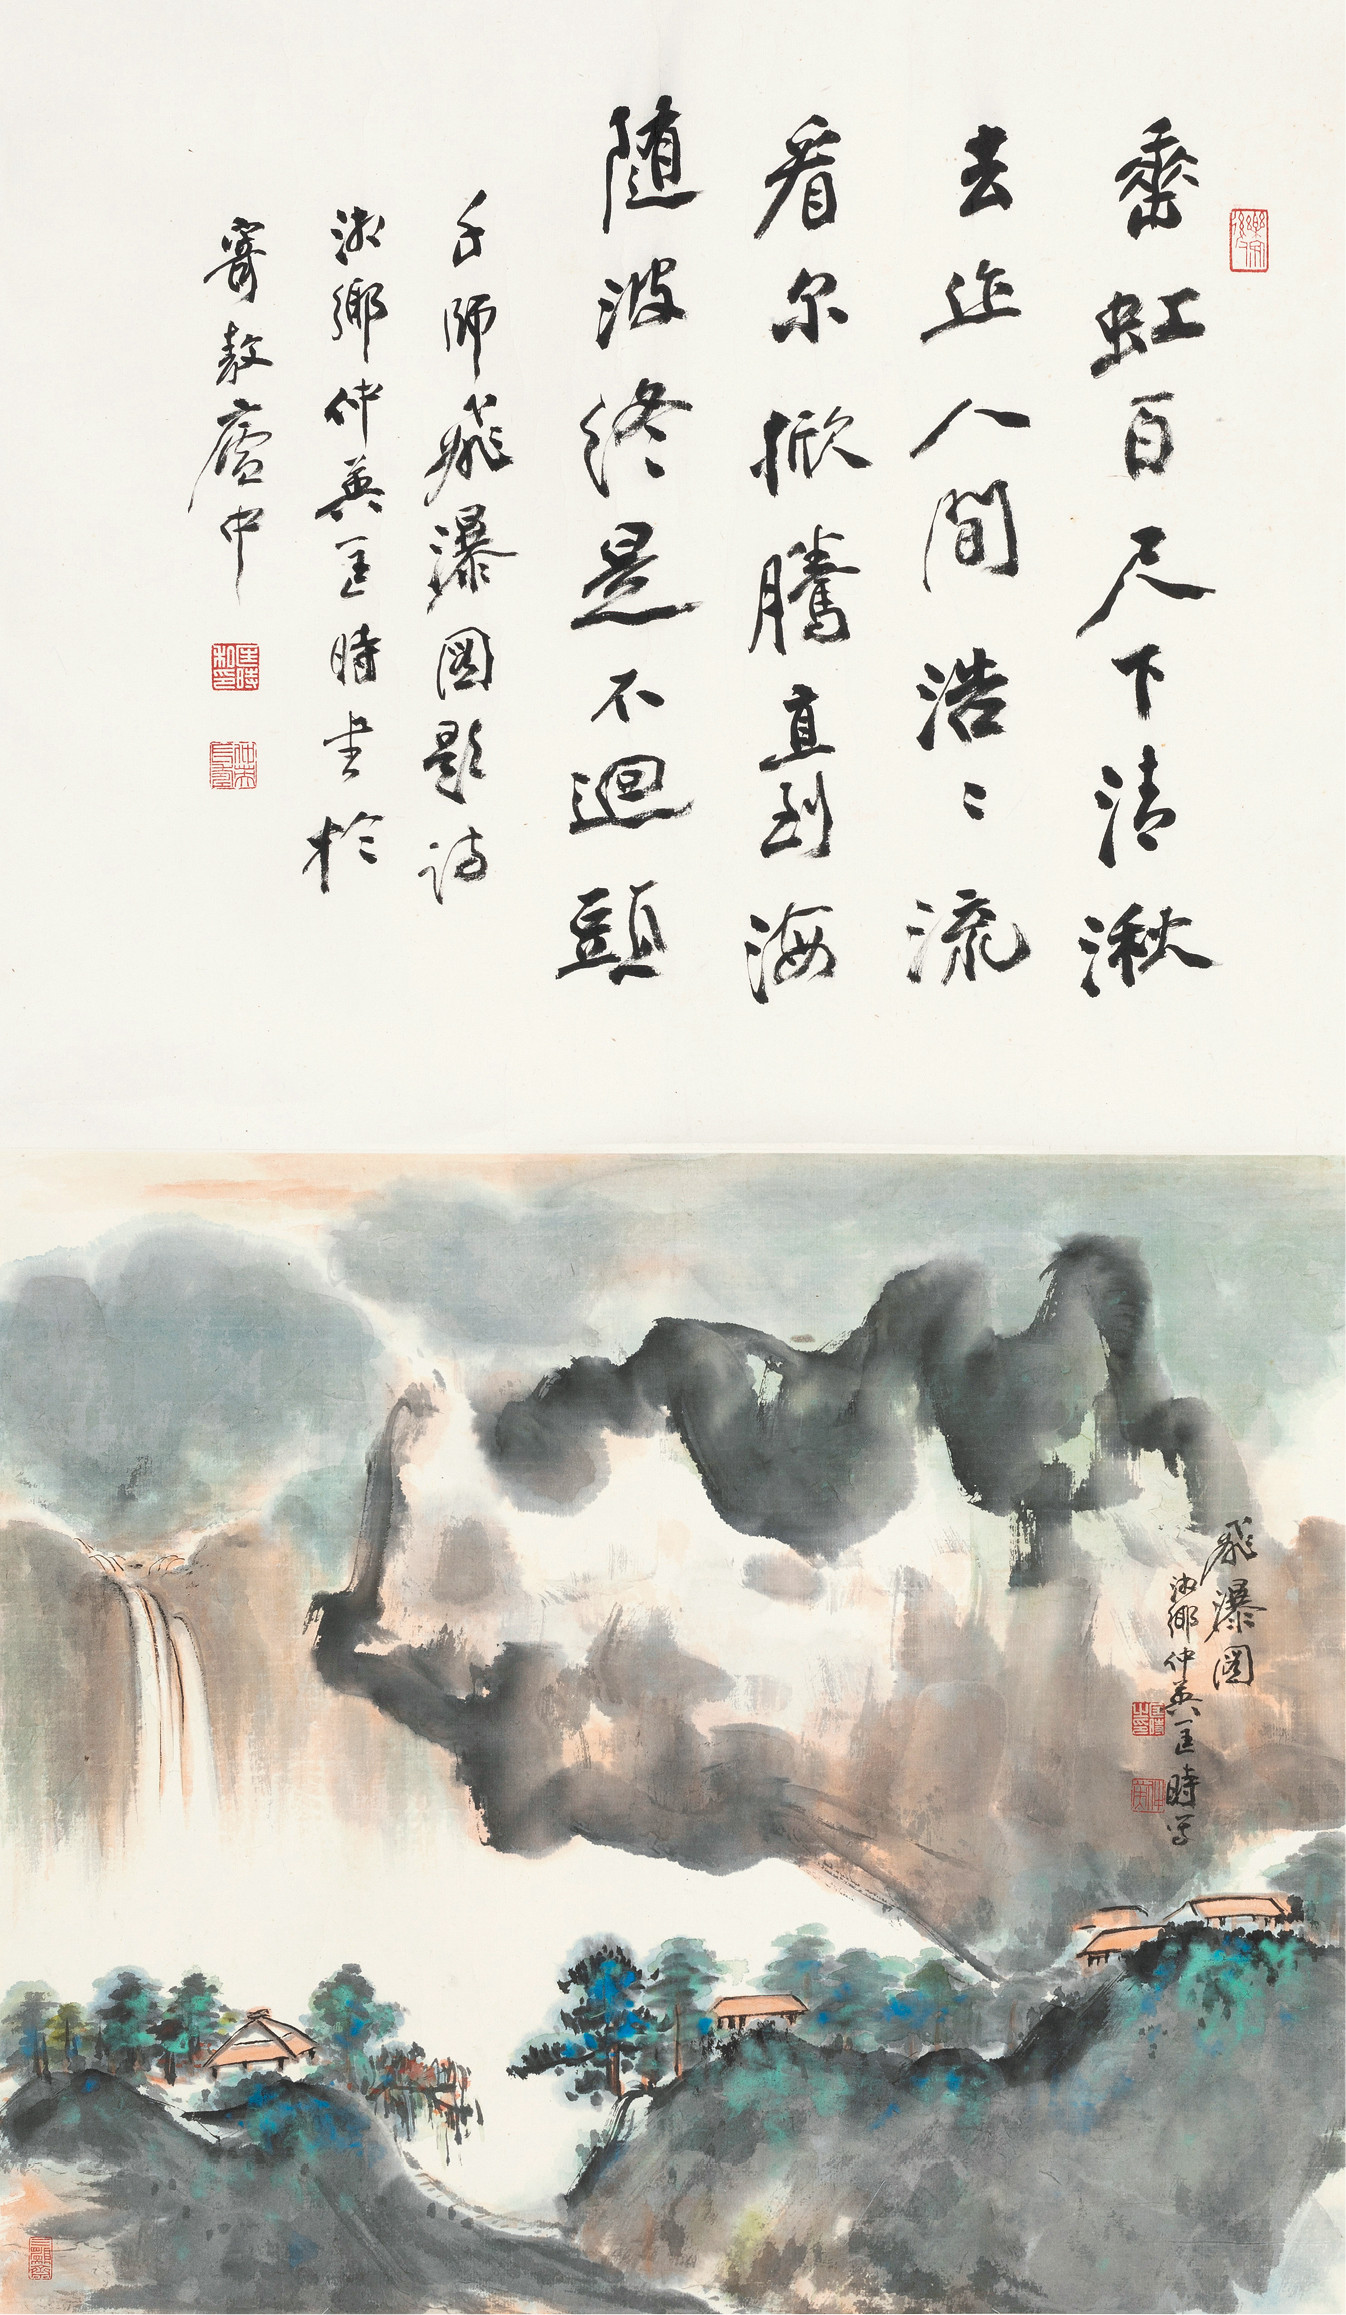 垂虹百尺下清湫
去作人間浩〻流
看尔掀騰直到海
随波終是不迴頭
壬師飛瀑圖題詩
湘鄉仲英匡時書於
寄敖廬中
匡時
飛瀑圖
湘鄉仲英匡時寫